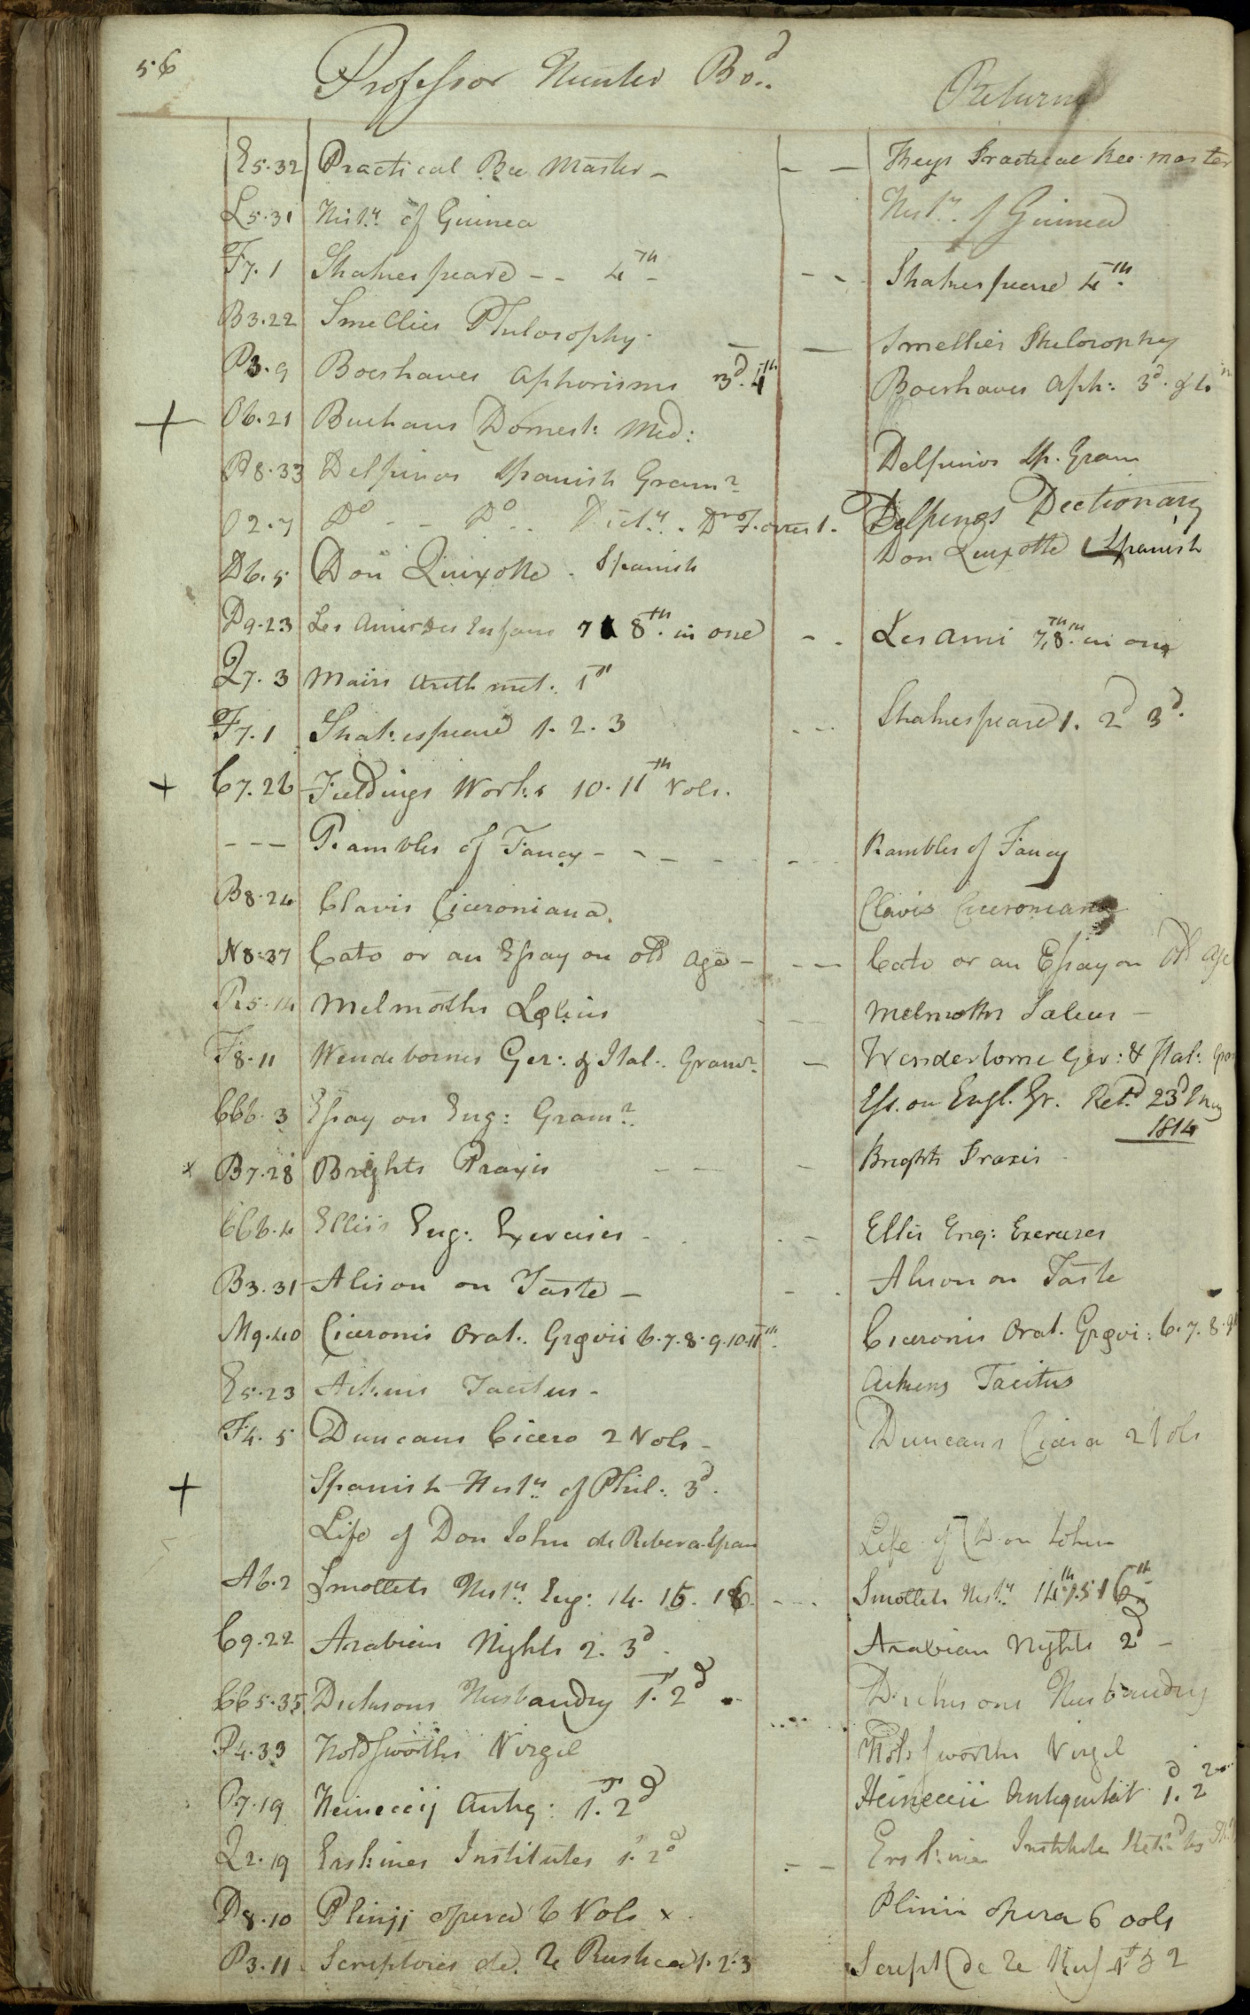 56 Professor Hunter Bo.d Returned
E5.32 Practical Bee Master - - - Keys Practical Bee-master
L5.31 Hist.y of Guinea Hist.y of Guinea
F7.1 Shakespeare - - 4th - - Shakespeare 4th
B3.22 Smellies Philosophy - - Smellies Philosophy
P3.9 Boerhaves Aphorisms 3d. 4th Boerhaves Aph: 3d. & 4th
+ O6.21 Buchans Domest: Med:
P8.33 Delpinos Spanish Gram.r Delpinos Sp. Gram
O2.7 Do - - Do .. Dict.y . Delpinos Dectionary
D6.5 Don Quixotte . Spanish Don Quixotte Spanish
D9.23 Les Ami des Enfans 7 & 8th. in one - - Les Ami 7,8th. in one
Q7.3 Mairs Arithmet. 1st
F7.1 Shakespeare 1. 2. 3 - - - Shakespeare 1. 2d 3d.
+ C7.26 Fieldings Works 10. 11th Vols.
- - - Rambles of Fancy - - - - - Rambles of Fancy
B8.24 Clavis Ciceroniana. Clavis Ciceroniana
N8.37 Cato or an Essay on old age - - - Cato or an Essay on Old Age
R5.14 Melmoths Lælius - - Melmoths Lælius -
F8.11 Wendebornes Ger: & Ital: Gram.r - Wenderborne Ger: & Ital: Gram
CC6.3 Essay on Eng: Gram.r Ess. on Engl. Gr. Ret.d 23d
1814
x B7.28 Brights Praxis - - - Brights Praxis
CC6.4 Ellis's Eng: Exercises - - Ellis Eng: Exercises
B3.31 Alison on Taste - - Alison on Taste
M9.40 Ciceronis Orat. Grævii 6.7.8.9.10.11th. Ciceronis Orat. Grævi: 6.7.8.9
E5.23 Aikens Tacitus - Aikens Tacitus
F4.5 Duncans Cicero 2 Vols - Duncans Cicero 2 Vols
+ Spanish Hist.y of Phil: 3d.
Life of Don John de Ribera Span Life of Don John
A6.2 Smolletts Hist.y Eng: 14. 15. 16 - - - Smolletts Hist.y 14th 15 16th
C9.22 Arabian Nights 2. 3d - Arabian Nights 2d -
CC5.35 Dicksons Husbandry 1. 2d - Dicksons Husbandry
P4.33 Holdsworths Virgil Holdsworths Virgil
P7.19 Heineccij Antiq: 1. 2d Heineccii Antiquitat 1. 2d
Q2.19 Erskines Institutes 1. 2d - - Erskines Institutes Ret.d by
D8.10 Plinij opera 6 Vols x Plinii opera 6 vols
P3.11 Scriptores de Re Rustica 1. 2. 3 Script de Re Rus 1st & 2